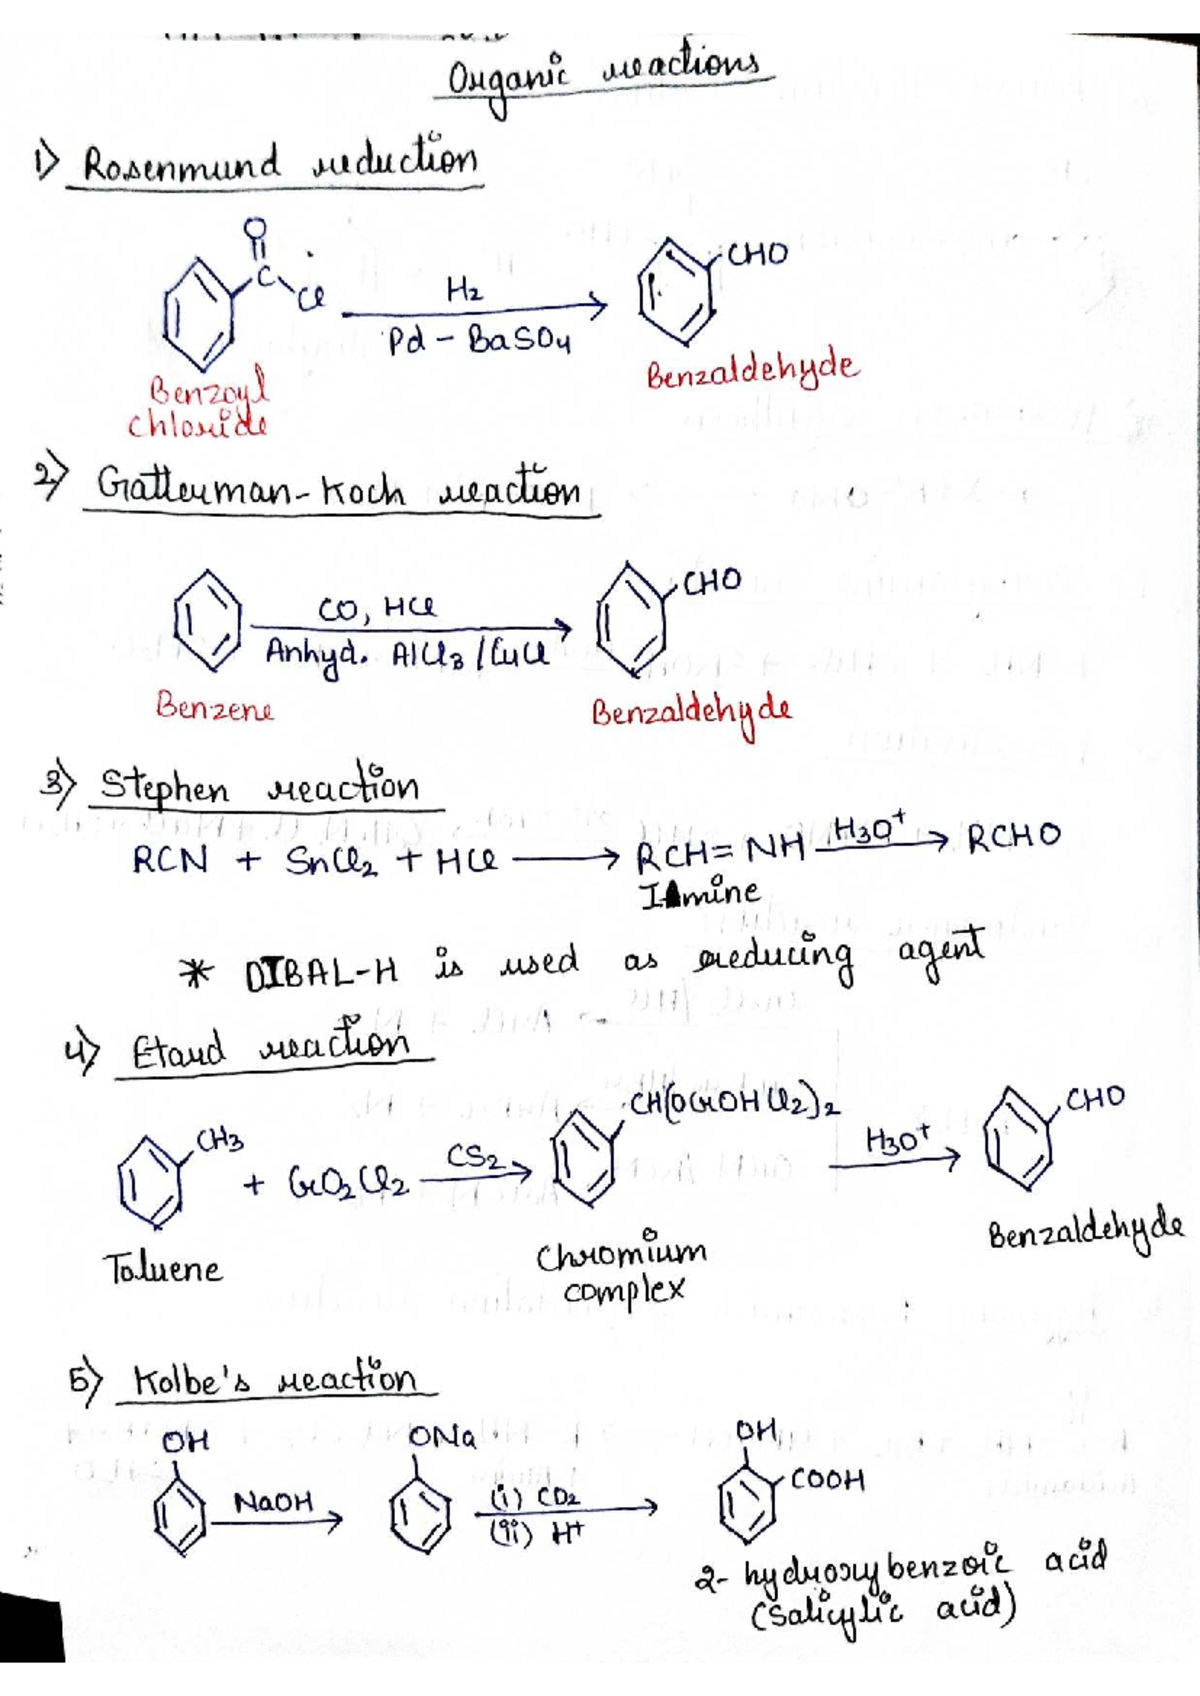 Organic reactions
1) Rosenmund reduction
O
C
Cl
H2
Pd - BaSO4
CHO
Benzoyl
chloride
Benzaldehyde
2) Gatterman-Koch reaction
CO, HCl
Anhyd. AlCl3 / CuCl
CHO
Benzene
Benzaldehyde
3) Stephen reaction
RCN + SnCl2 + HCl → RCH=NH H3O+ → RCHO
Imine
* DIBAL-H is used as reducing agent
4) Etard reaction
CH3
+ CrO2Cl2
CS2
CH(OCrOHCl2)2
H3O+
CHO
Toluene
Chromium
complex
Benzaldehyde
5) Kolbe's reaction
OH
NaOH
ONa
(i) CO2
(ii) H+
OH
COOH
2- hydroxybenzoic acid
(Salicylic acid)